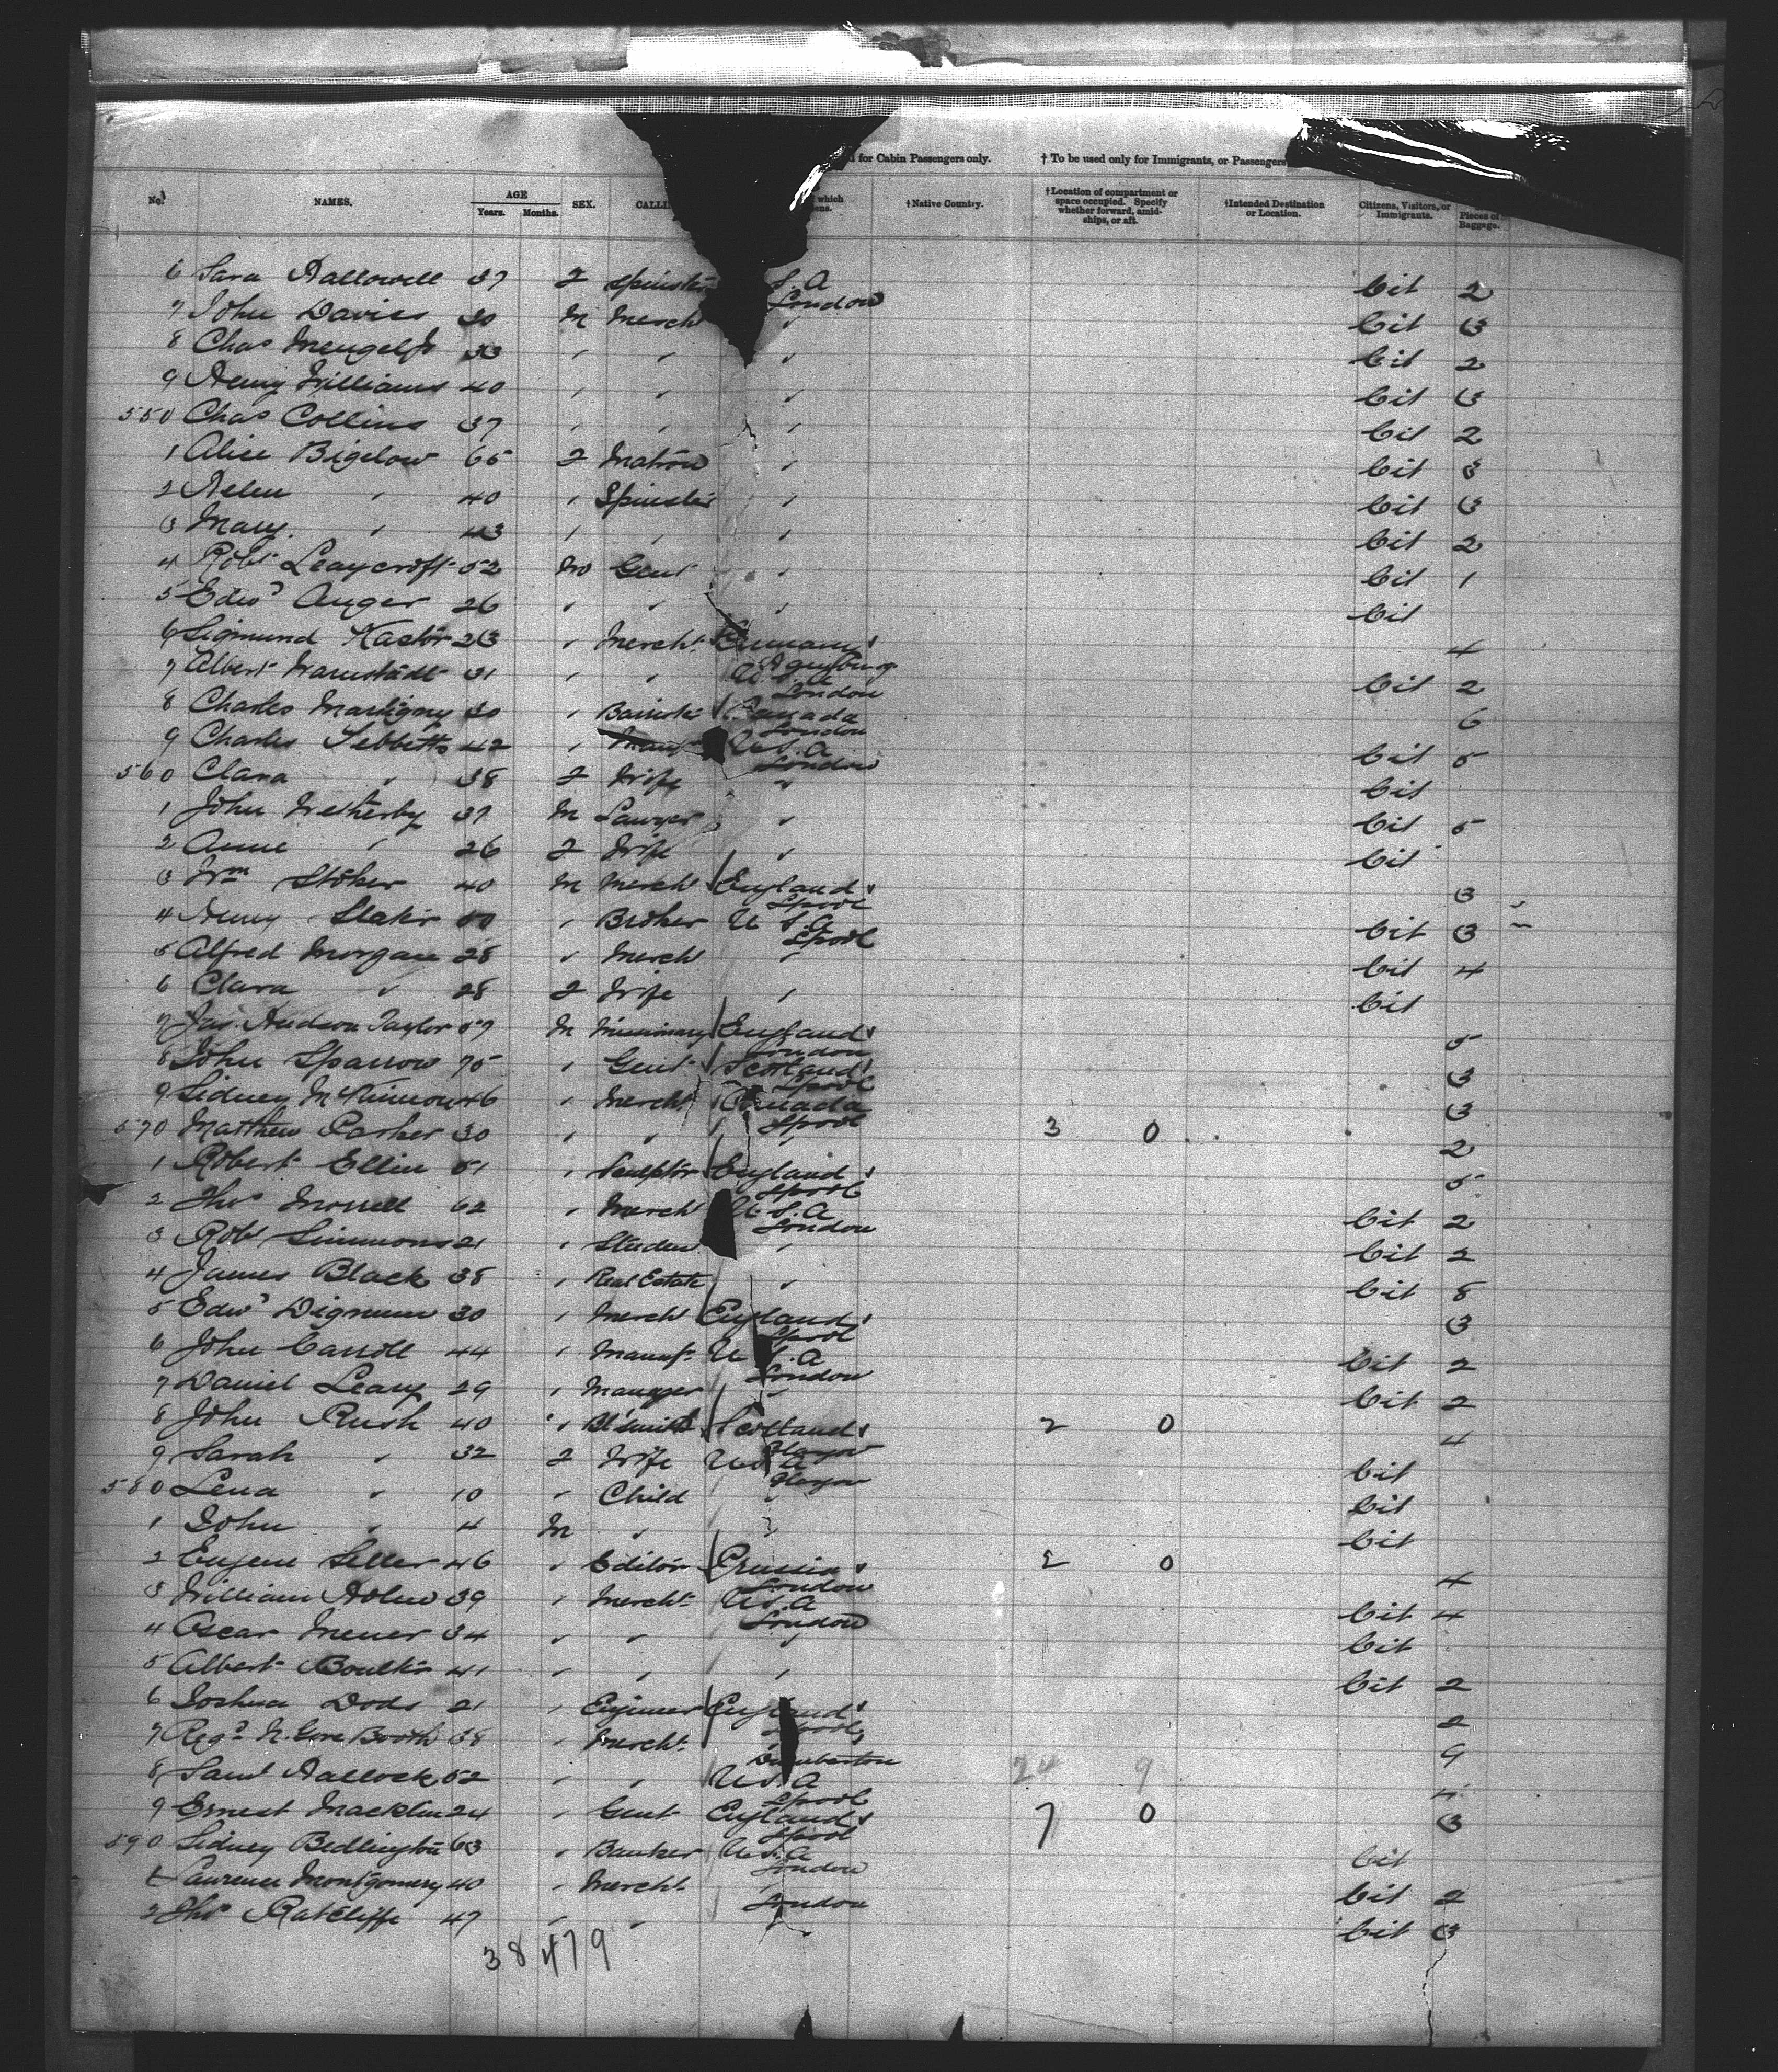 d for Cabin Passengers only. † To be used only for Immigrants, or Passengers
No. NAMES. AGE Years. Months. SEX. which †Native Country. †Location of compartment or space occupied. Specify whether forward, amidships, or aft. †Intended Destination or Location. Citizens, Visitors, or Immigrants. Pieces of Baggage.
6 Sara Hallowell 37 F Spinster S.A London Cit 2
7 John Davies 30 M Mercht " Cit 3
8 Chas Mengel Jr 33 " " " Cit 2
9 Henry Williams 40 " " " Cit 3
550 Chas Collins 37 " " " Cit 2
1 Alice Bigelow 65 F Matron " Cit 3
2 Helen " 40 " Spinster " Cit 3
3 Mary " 43 " " " Cit 2
4 Robt Leaycroft 52 M Gent " Cit 1
5 Edwd Auger 26 " " " Cit
6 Sigmund Kastor 23 " Mercht 4
7 Albert 31 " " U.S.A London Cit 2
8 Charles Martigny 30 " Canada London 6
9 Charles Tebbetts 42 " Manf U.S.A London Cit 5
560 Clara " 38 F Wife " Cit
1 John Wetherby 37 M Lawyer " Cit 5
2 Anne " 26 F Wife " Cit
3 Wm Stoker 40 M Mercht England Lpool 3
4 Henry Slater " Broker U.S.A Lpool Cit 3
5 Alfred Morgan 28 " Mercht " Cit 4
6 Clara " 28 F Wife " Cit
7 Jas. Hudson Taylor 57 M Missionary England London 5
8 John Sparrow 75 " Gent Scotland Lpool 3
9 Sidney McKinnon 46 " Mercht Canada Lpool 3
570 Matthew Parker 30 " " " 3 0 2
1 Robert Ellin 51 " Sculptor England Lpool 5
2 Thos Morrell 62 " Mercht U.S.A London Cit 2
3 Robt Simmons 21 " Studen " Cit 2
4 James Black 38 " Real Estate " Cit 8
5 Edwd Dignum 30 " Mercht England Lpool 3
6 John Carroll 44 " Manuf. U.S.A London Cit 2
7 Daniel Leary 29 " Manager " Cit 2
8 John Rush 40 " Bl'smith Scotland Glasgow 2 0 4
9 Sarah " 32 F Wife U.S.A Glasgow Cit
580 Lena " 10 " Child " Cit
1 John " 4 M " " Cit
2 Eugene Seller 46 " Editor Prussia London 2 0 4
3 William 39 " Mercht U.S.A London Cit 4
4 Oscar 34 " " " Cit
5 Albert Boulter 41 " " " Cit 2
6 Joshua Dods 21 " Engineer England Lpool 2
7 Regd N. Gore Booth 38 " Mercht " 9
8 Saml Hallock 52 " " Dumbarton U.S.A Lpool 24 9
9 Ernest Macklin 24 " Gent England Lpool 7 0 3
590 Sidney Bedlington 63 " Banker U.S.A London Cit
1 Laurence Montgomery 40 " Mercht " Cit 2
2 Thos Ratcliffe 47 " " London Cit 3
38479